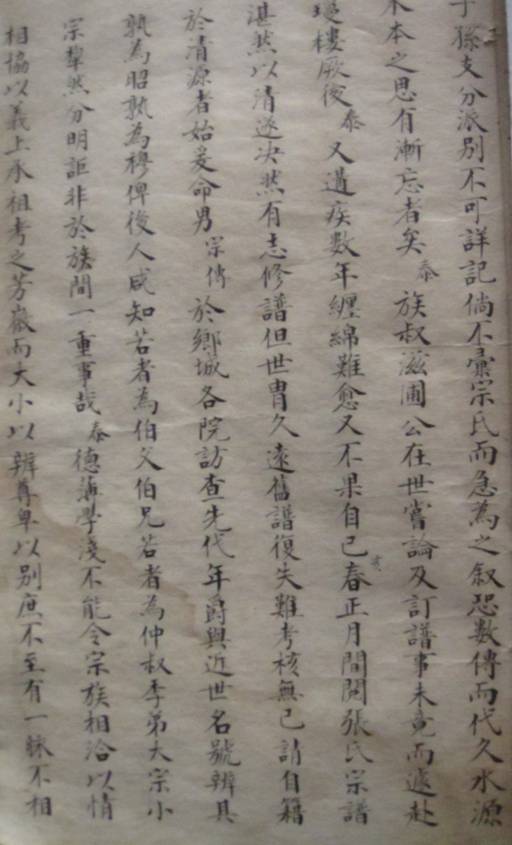 子孫支分派別不可詳記倘不彙宗氏而急為之叙恐數傳而代久水源
木本之思有漸忘者矣泰族叔滋圃公在世嘗論及訂譜事未竟而遽赴
瓊樓厥後泰又遘疾數年纏綿難愈又不果自己亥春正月間閱張氏宗譜
湛然以清遂決然有志修譜但世胄久遠舊譜復失難考核無已請自籍
於清源者始爰命男宗傳於鄉城各院訪查先代年爵與近世名號辨其
孰為昭孰為穆俾後人咸知若者為伯父伯兄若者為仲叔季弟大宗小
宗犂然分明詎非於族間一重事哉泰德薄學淺不能令宗族相洽以情
相協以義上承祖考之芳徽而大小以辨尊卑以別庶不至有一脉不相